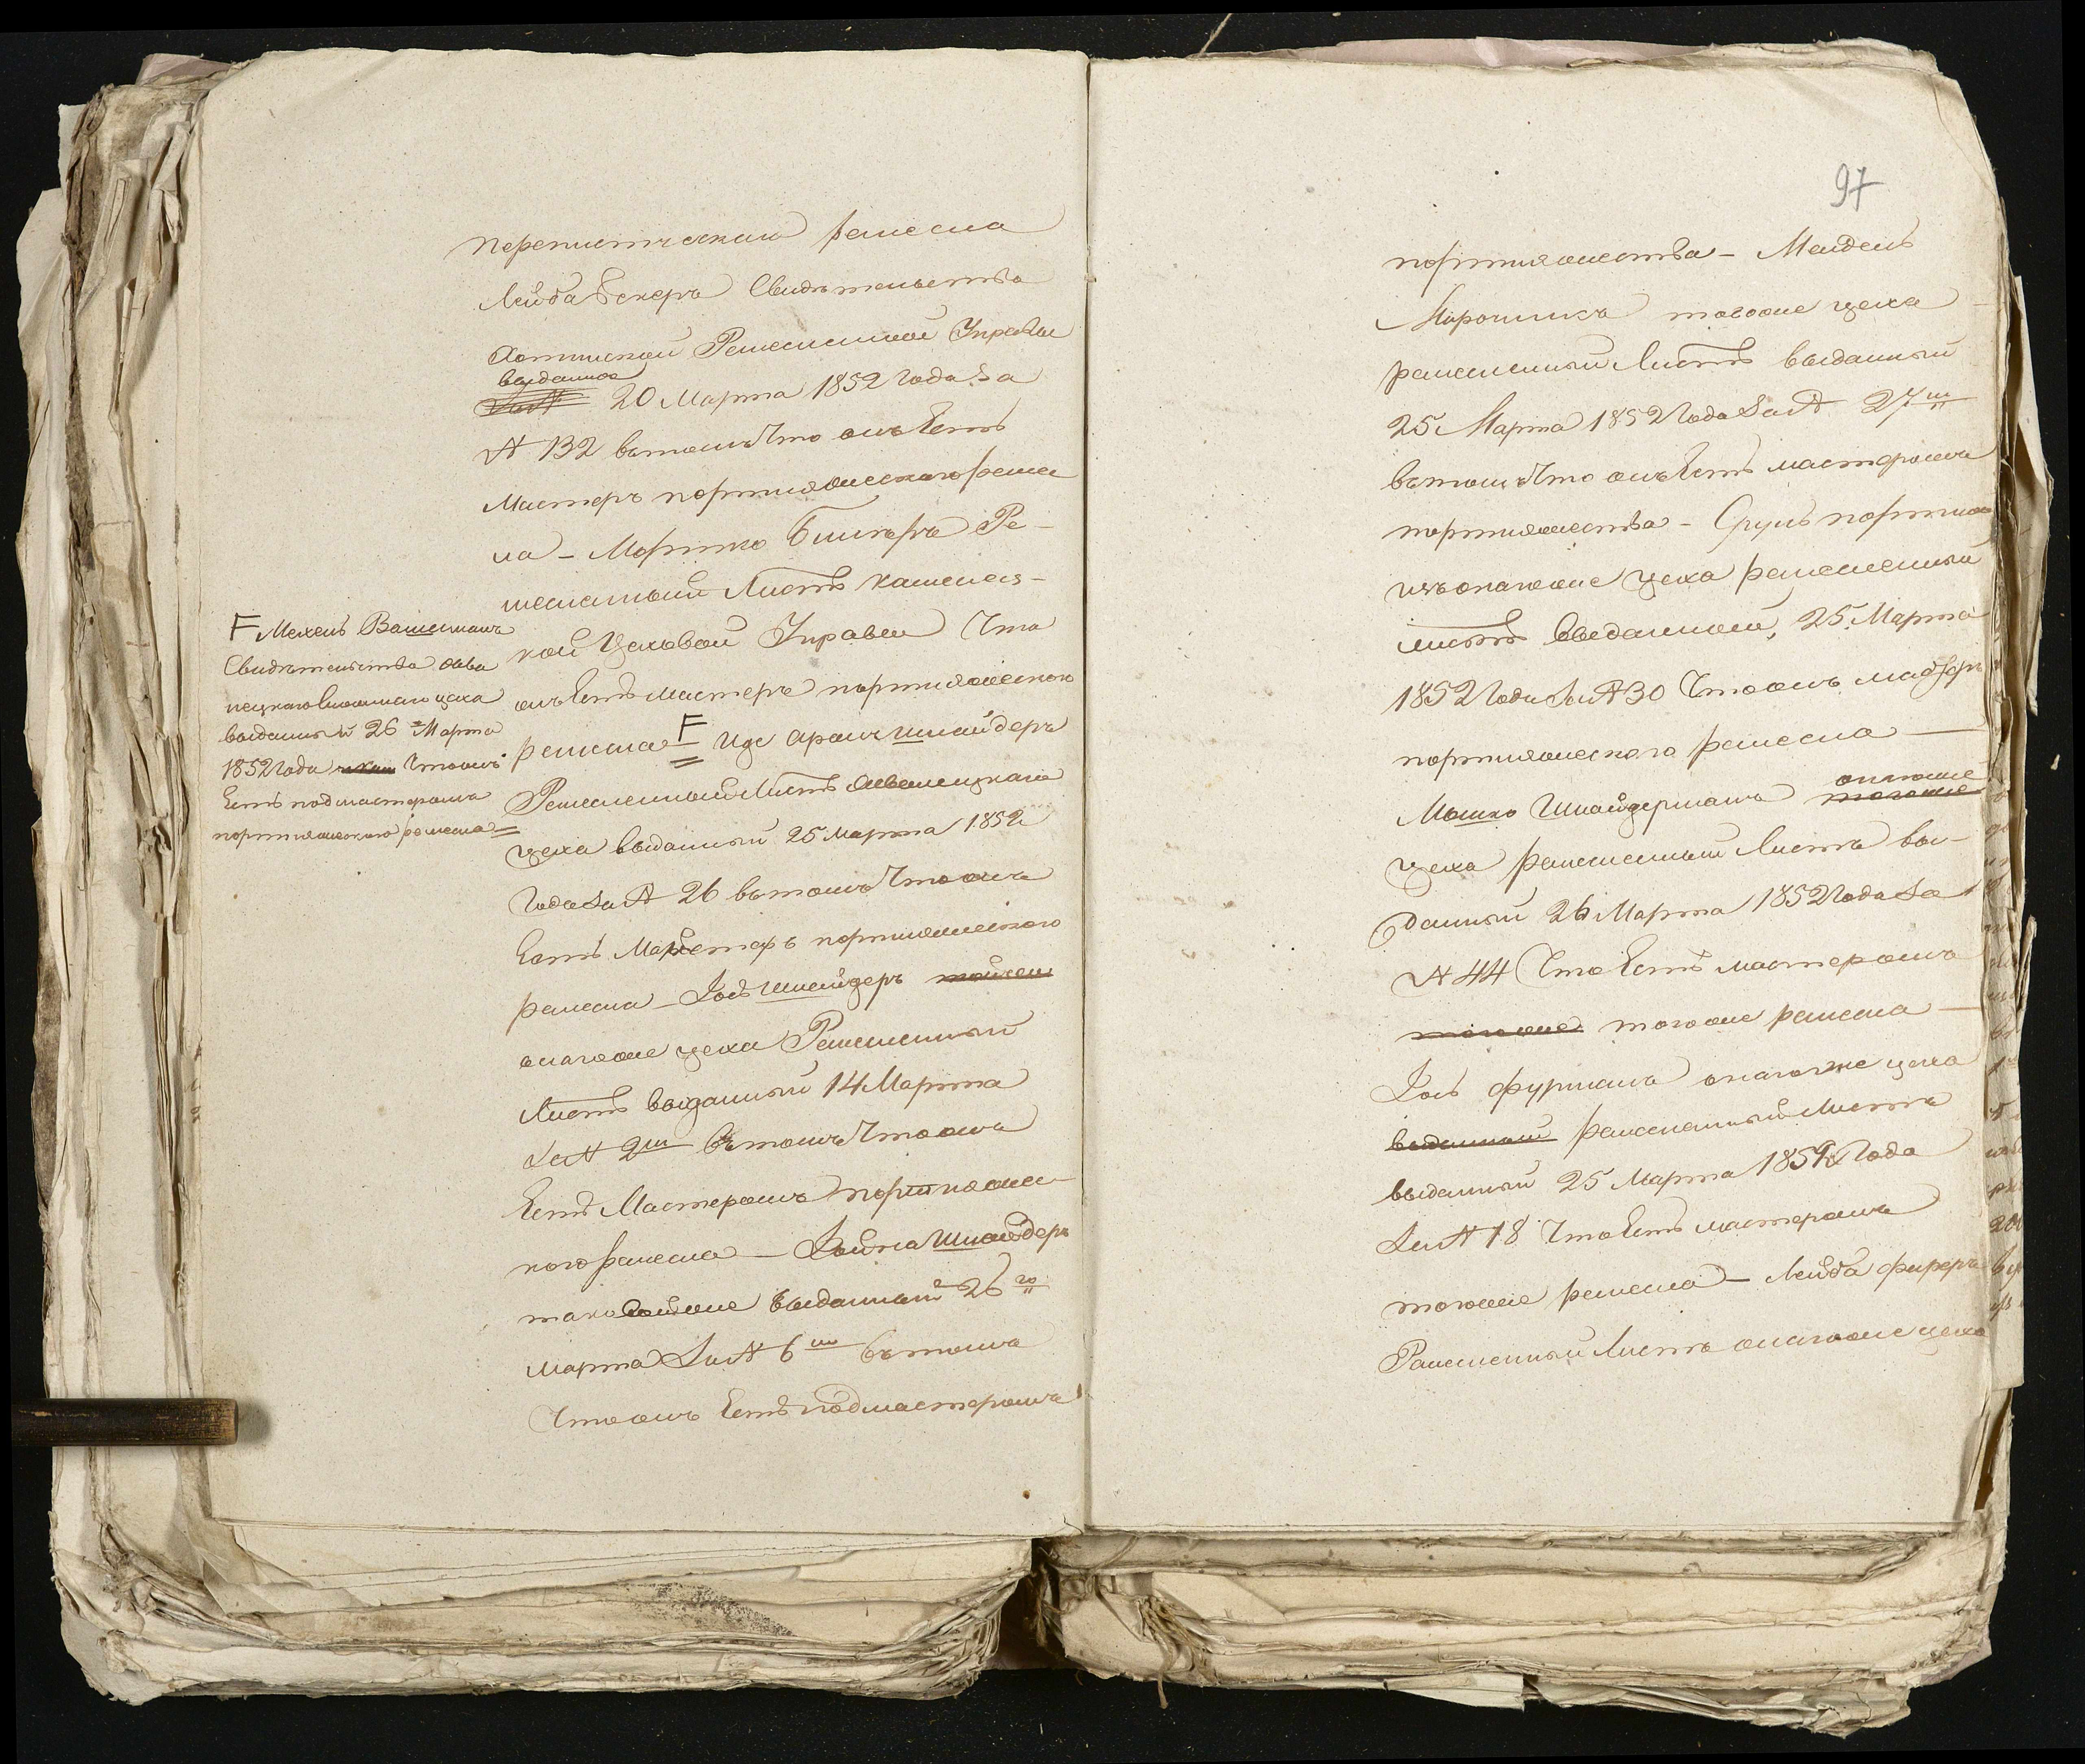 переплетческаго ремесла
Лейба Бекеръ Свидѣтельство
Хотинской Ремесленной Управы
выданное
За № 20 Марта 1852 Года За
№ 132 вътомъ Что онъ Есть
Мастеръ портняжескаго ремес
ла - Мортко Ре-
месленный Листъ Каменец-
кой Цеховой Управы Что
онъ Есть мастеръ портняжескаго
ремесла F Иде Аронъ Шнайдеръ
Ремесленный Листъ
цеха выданный 25 марта 1852
Года За № 26 вътомъ Что онъ
Есть Мастеръ портняжеского
ремесла - Іось Шнейдеръ
онагоже цеха Ремесленный
Листъ выданный 14 Марта
За № 2м вътомъ Что онъ
Есть Мастеромъ портняжес-
кого ремесла - Шнайдеръ
таковойже выданный 26го
марта За № 6м вътомъ
Что онъ Есть подмастеромъ
F Мехель Вашерманъ
Свидѣтельства
цеха
выданный 26 Марта
1852 Года Что онъ
Есть подмастеромъ
портняжескаго ремесла
97
портняжества - Мендель
Мирочникъ тогоже цеха
ремесленный Листъ выданный
25 Марта 1852 Года За № 27м
вътомъ Что онъ Есть мастеромъ
портняжества - Сруль портной
изъ онагоже цеха ремесленный
листъ выданный, 25 Марта
1852 Года За № 30 Что онъ мастеръ
портняжеского ремесла -
онагоже
Мошко Шнайдерманъ тогоже
цеха ремесленный Листъ вы-
данный 26 Марта 1852 Года За
№ 44 Что Есть мастеромъ
тогоже тогоже ремесла -
Іось фурманъ онагоже цеха
выданный ремесленный Листъ
выданный 25 Марта 1852 Года
За № 18 Что Есть мастеромъ
тогоже ремесла - Лейба фиреръ
Ремесленный Листъ онагоже цеха